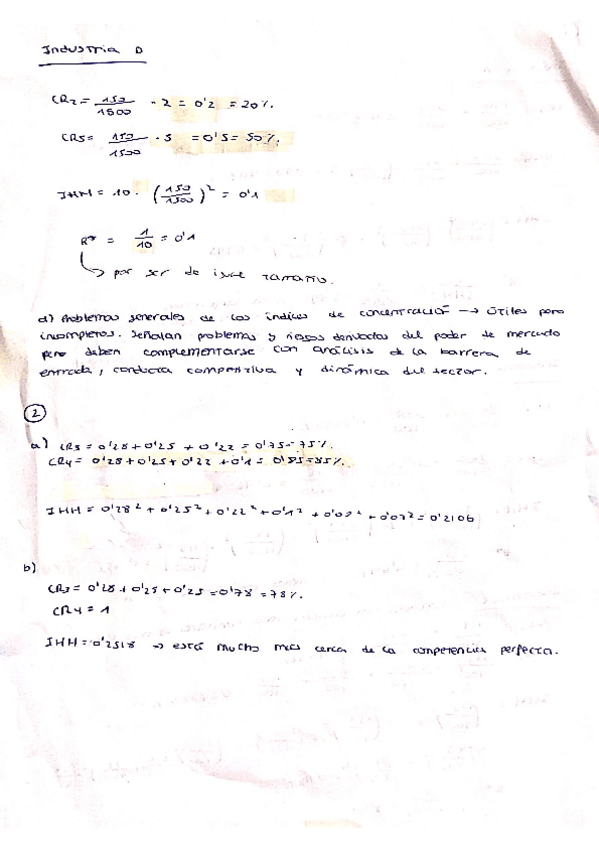 Industria D
CR2 = 150/1500 · 2 = 0'2 = 20%.
CR5 = 150/1500 · 5 = 0'5 = 50%.
IHH = 10 · (150/1500)² = 0'1
R* = 1/10 = 0'1
por ser de igual tamaño.
d) Problemas generales de los índices de concentración → útiles pero
incompletos. Señalan problemas y riesgos derivados del poder de mercado
pero deben complementarse con análisis de la barrera de
entrada, conducta competitiva y dinámica del sector.
2
a) CR3 = 0'28 + 0'25 + 0'22 = 0'75 = 75%.
CR4 = 0'28 + 0'25 + 0'22 + 0'1 = 0'85 = 85%.
IHH = 0'28² + 0'25² + 0'22² + 0'1² + 0'08² + 0'07² = 0'2106
b)
CR3 = 0'28 + 0'25 + 0'25 = 0'78 = 78%.
CR4 = 1
IHH = 0'2518 → está mucho más cerca de la competencia perfecta.